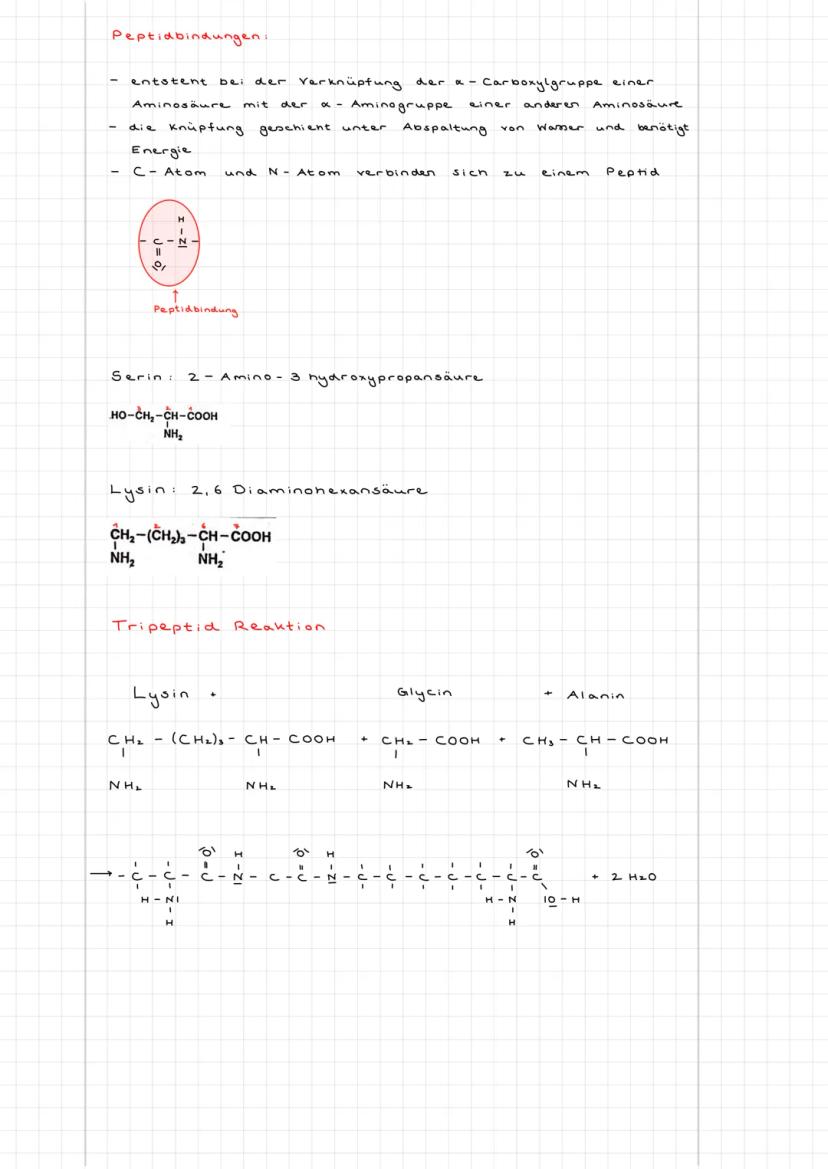 Peptidbindungen:
- entsteht bei der Verknüpfung der α - Carboxylgruppe einer
Aminosäure mit der α - Aminogruppe einer anderen Aminosäure
- die Knüpfung geschieht unter Abspaltung von Wasser und benötigt
Energie
- C - Atom und N - Atom verbinden sich zu einem Peptid
H
- C - N -
O
Peptidbindung
Serin : 2 - Amino - 3 hydroxypropansäure
3 2 1
HO-CH₂-CH-COOH
NH₂
Lysin : 2,6 Diaminohexansäure
1 2 6 7
CH₂-(CH₂)₃-CH-COOH
NH₂ NH₂
Tripeptid Reaktion
Lysin + Glycin + Alanin
CH₂ - (CH₂)₃ - CH - COOH + CH₂ - COOH + CH₃ - CH - COOH
NH₂ NH₂ NH₂ NH₂
O H O H O
→ - C - C - C - N - C - C - N - C - C - C - C - C - C - C + 2 H₂O
H - N H - N O - H
H H